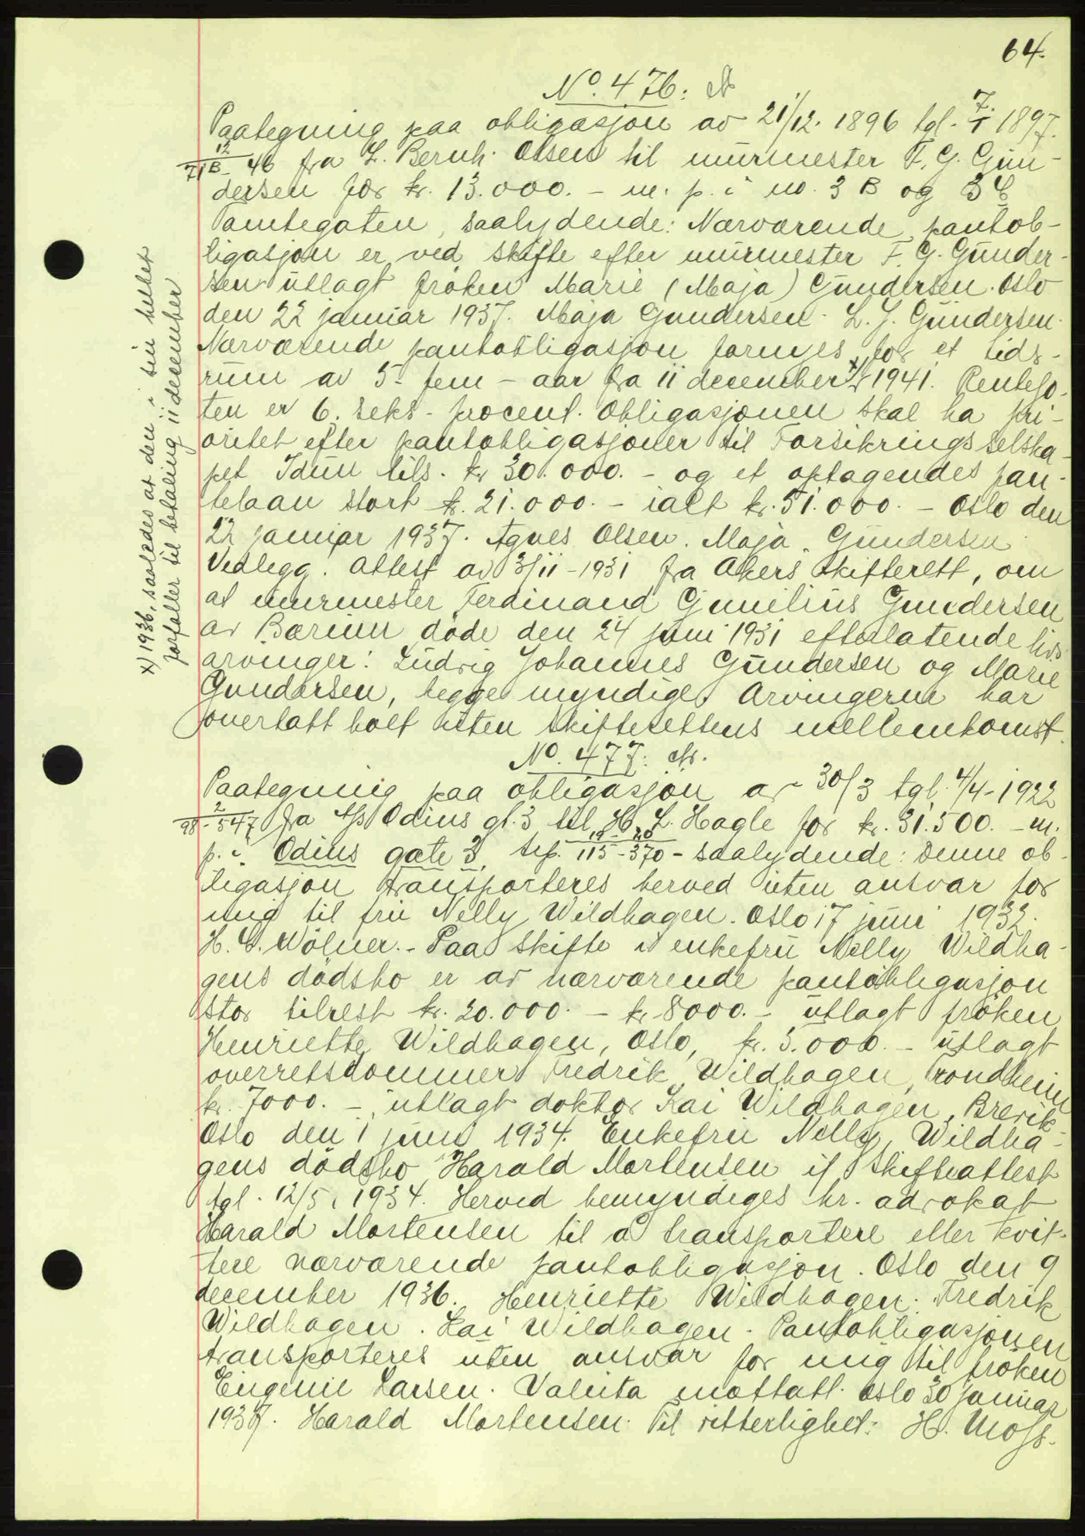 64.
No. 476:
Paategning paa obligasjon av 21/12. 1896 tgl. 7/1 1897.
12/71B - 46 fra L. Bernh. Olsen til murmester F. G. Gun-
dersen for kr. 13.000. - m. p. i no. 3 B og 3 C
Tomtegaten, saalydende: Nærværende pantob-
ligasjon er ved skifte efter murmester F. G. Gunder-
sen utlagt frøken Marie (Maja) Gundersen. Oslo
den 22 januar 1937. Maja Gundersen. L. J. Gundersen.
Nærværende pantobligasjon fornyes for et tids-
rum av 5 - fem - aar fra 11 december x) 1941. Rentefo-
ten er 6. seks - procent. Obligasjonen skal ha pri-
oritet efter pantobligasjoner til Forsikringsselska-
pet Idun tils. kr 30.000. - og et optagendes pan-
telaan stort kr. 21.000. - ialt kr. 51.000. - Oslo den
22 januar 1937. Agnes Olsen. Maja Gundersen
Vedlegg. Attest av 3/11 - 1931 fra Akers skifterett, om
at murmester Ferdinand Gunelius Gundersen
av Bærum døde den 24 juni 1931 efterlatende livs-
arvinger: Ludvig Johannes Gundersen og Marie
Gundersen, begge myndige. Arvingerne har
overtatt boet uten skifterettens mellemkomst.
x) 1936, saaledes at den i sin helhet
forfaller til betaling 11 december
No. 477:
Paategning paa obligasjon av 30/3 tgl. 4/4 - 1922
2/98 - 547 fra A/S Odins gt. 3 til H. L. Hagle for kr. 31.500. - m.
p. i. Odins gate 3, tsf. 19/115 - 20/370 - saalydende: Denne ob-
ligasjon transporteres herved uten ansvar for
mig til fru Nelly Wildhagen. Oslo 17 juni 1932.
H. C. Wölner. - Paa skifte i enkefru Nelly Wildha-
gens dødsbo er av nærværende pantobligasjon
stor tilrest kr. 20.000. - kr. 8000. - utlagt frøken
Henriette Wildhagen, Oslo, kr. 5.000. - utlagt
overrettsdommer Fredrik Wildhagen, Trondheim
kr. 7000. - utlagt doktor Kai Wildhagen, Brevik.
Oslo den 1 juni 1934. Enkefru Nelly Wildha-
gens dødsbo Harald Mortensen if skifteattest
tgl. 12/5, 1934. Herved bemyndiges hr. advokat
Harald Mortensen til å transportere eller kvit-
tere nærværende pantobligasjon. Oslo den 9
december 1936. Henriette Wildhagen. Fredrik
Wildhagen. Kai Wildhagen. Pantobligasjonen
transporteres uten ansvar for mig til frøken
Eugenie Larsen. Valuta mottatt. Oslo 30 januar
1937. Harald Mortensen. Til vitterlighet: H. Moss.